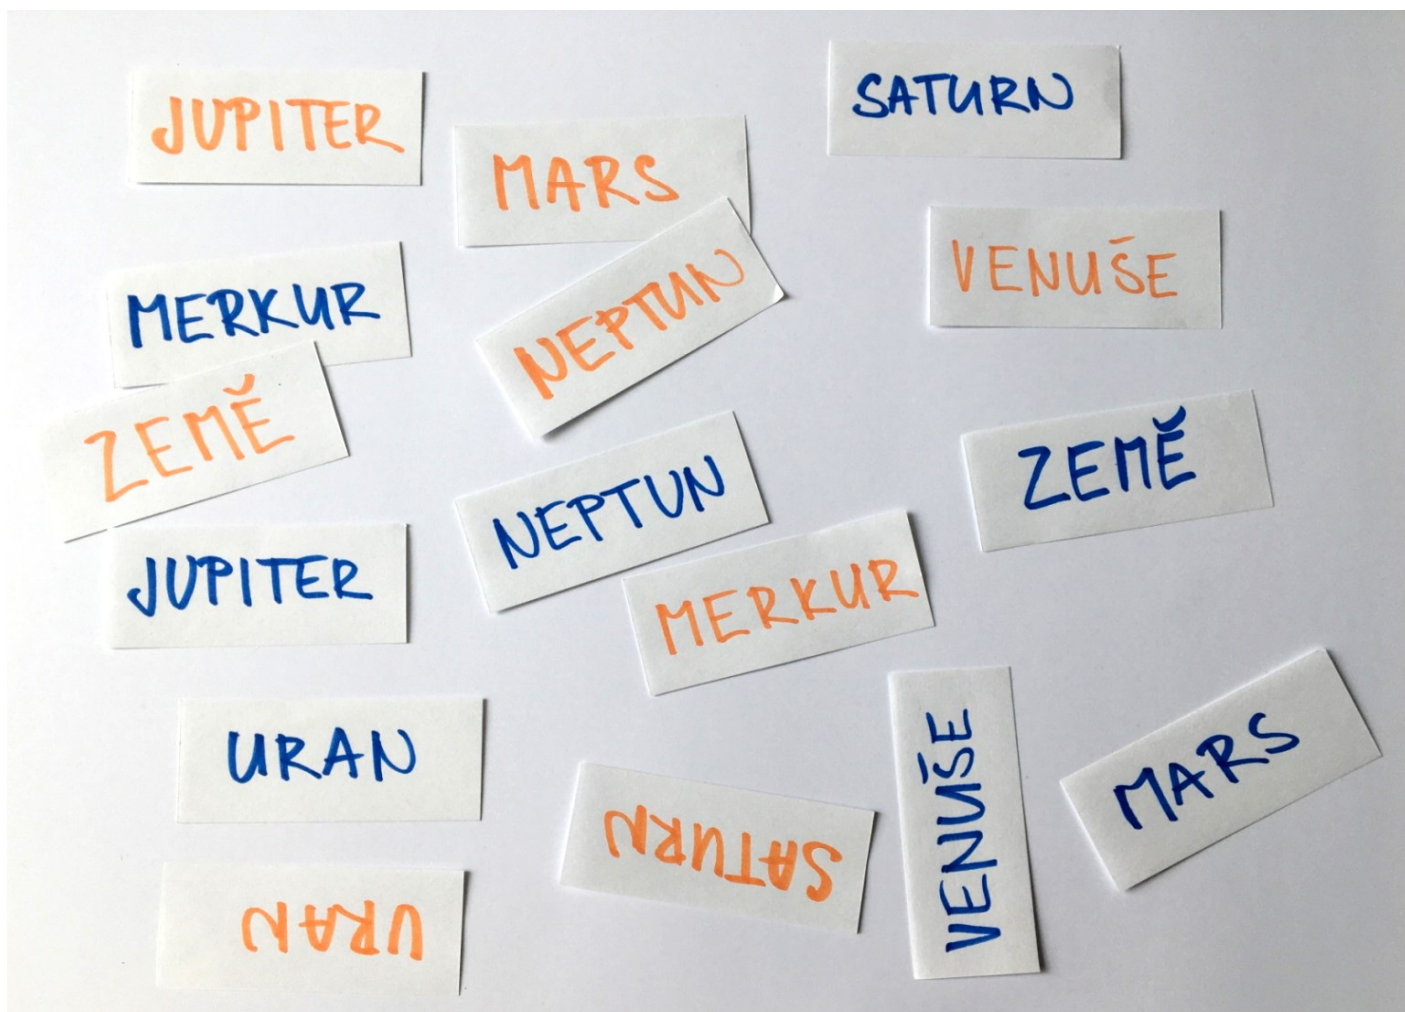 JUPITER
SATURN
MARS
VENUŠE
MERKUR
NEPTUN
ZEMĚ
ZEMĚ
NEPTUN
JUPITER
MERKUR
URAN
MARS
VENUŠE
SATURN
URAN